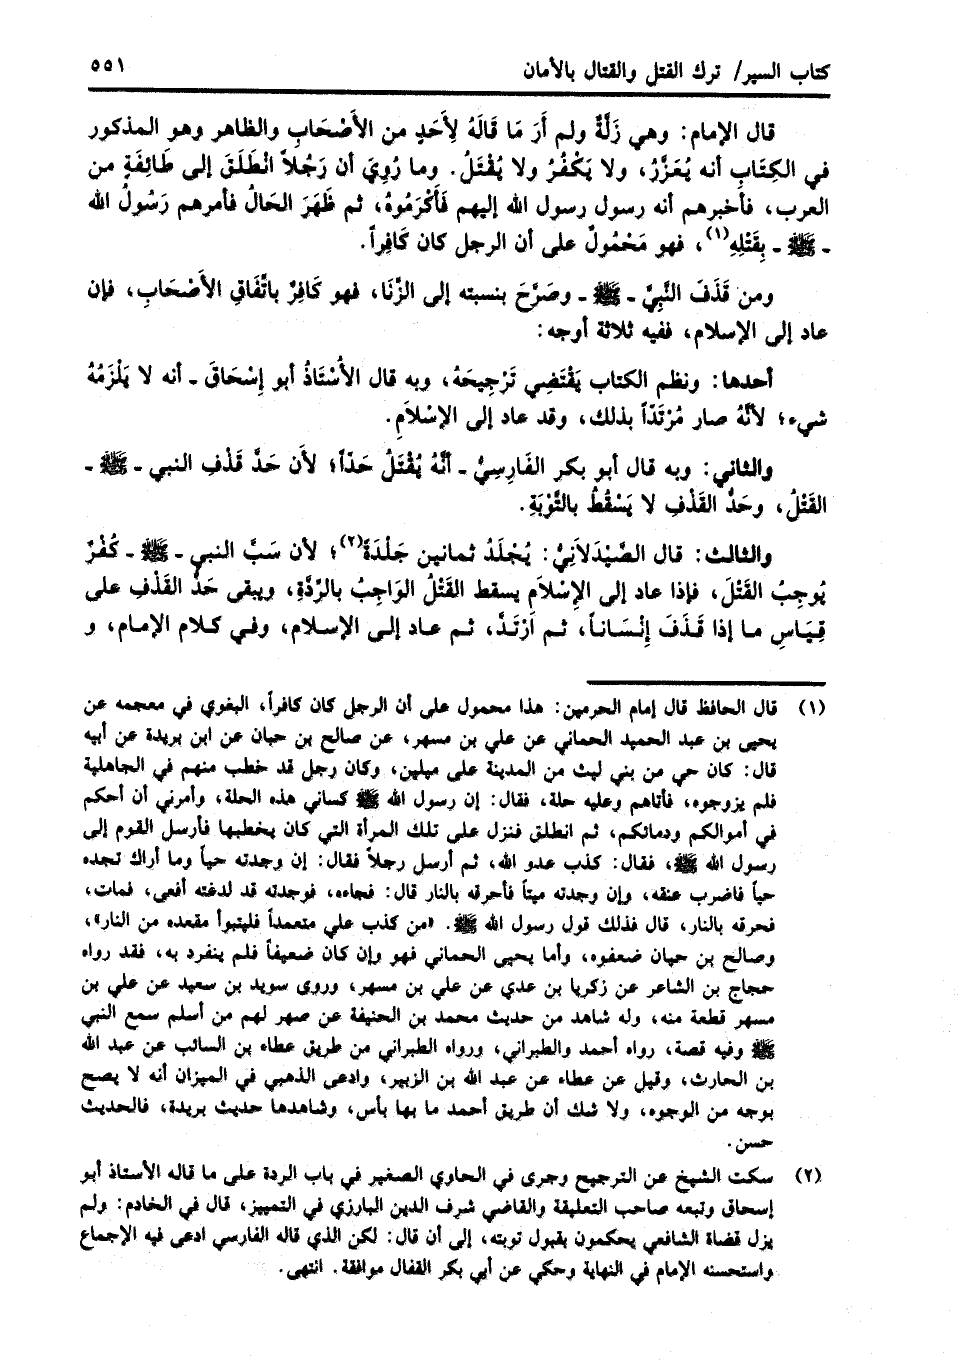 كتاب السير/ ترك القتل والقتال بالأمان
٥٥١
قال الإمام: وهي زَلَّةٌ ولم أَرَ مَا قَالَهُ لِأَحَدٍ من الأَصْحَابِ والظاهر وهو المذكور
في الكِتَابِ أنه يُعَزَّرُ، ولا يَكْفُرُ ولا يُقْتَلُ. وما رُوِيَ أن رَجُلاً انْطَلَقَ إلى طَائِفَةٍ من
العرب، فأخبرهم أنه رسول رسول الله إليهم فَأَكْرَمُوهُ، ثم ظَهَرَ الحَالُ فأمرهم رَسُولُ الله
ـ ﷺ ـ بِقَتْلِهِ(١)، فهو مَحْمُولٌ على أن الرجل كان كَافِراً.
ومن قَذَفَ النَّبِيَّ ـ ﷺ ـ وصَرَّحَ بنسبته إلى الزِّنَا، فهو كَافِرٌ باتِّفَاقِ الأَصْحَابِ، فإن
عاد إلى الإسلام، ففيه ثلاثة أوجه:
أحدها: ونظم الكتاب يَقْتَضِي تَرْجِيحَهُ، وبه قال الأُسْتَاذُ أبو إِسْحَاقَ ـ أنه لا يَلْزَمُهُ
شيء؛ لأنَّهُ صار مُرْتَدّاً بذلك، وقد عاد إلى الإِسْلاَمِ.
والثاني: وبه قال أبو بكر الفَارِسِيُّ ـ أنَّهُ يُقْتَلُ حَدّاً؛ لأن حَدَّ قَذْفِ النبي ـ ﷺ ـ
القَتْلُ، وحَدُّ القَذْفِ لا يَسْقُطُ بالتَّوْبَةِ.
والثالث: قال الصَّيْدَلاَنِيُّ: يُجْلَدُ ثمانين جَلْدَةً(٢)؛ لأن سَبَّ النبي ـ ﷺ ـ كُفْرٌ
يُوجِبُ القَتْلَ، فإذا عاد إلى الإِسْلاَمِ يسقط القَتْلُ الوَاجِبُ بالرِّدَّةِ، ويبقى حَدُّ القَذْفِ على
قِيَاسِ ما إذا قَذَفَ إِنْسَاناً، ثم ارْتَدَّ، ثم عاد إلى الإسلام، وفي كلام الإمام، و
(١) قال الحافظ قال إمام الحرمين: هذا محمول على أن الرجل كان كافراً، البغوي في معجمه عن
يحيى بن عبد الحميد الحماني عن علي بن مسهر، عن صالح بن حبان عن ابن بريدة عن أبيه
قال: كان حي من بني ليث من المدينة على ميلين، وكان رجل قد خطب منهم في الجاهلية
فلم يزوجوه، فأتاهم وعليه حلة، فقال: إن رسول الله ﷺ كساني هذه الحلة، وأمرني أن أحكم
في أموالكم ودمائكم، ثم انطلق فنزل على تلك المرأة التي كان يخطبها فأرسل القوم إلى
رسول الله ﷺ، فقال: كذب عدو الله، ثم أرسل رجلاً فقال: إن وجدته حياً وما أراك تجده
حياً فاضرب عنقه، وإن وجدته ميتاً فأحرقه بالنار قال: فجاءه، فوجدته قد لدغته أفعى، فمات،
فحرقه بالنار، قال فذلك قول رسول الله ﷺ. «من كذب علي متعمداً فليتبوأ مقعده من النار»،
وصالح بن حيان ضعفوه، وأما يحيى الحماني فهو وإن كان ضعيفاً فلم ينفرد به، فقد رواه
حجاج بن الشاعر عن زكريا بن عدي عن علي بن مسهر، وروى سويد بن سعيد عن علي بن
مسهر قطعة منه، وله شاهد من حديث محمد بن الحنيفة عن صهر لهم من أسلم سمع النبي
ﷺ وفيه قصة، رواه أحمد والطبراني، ورواه الطبراني من طريق عطاء بن السائب عن عبد الله
بن الحارث، وقيل عن عطاء عن عبد الله بن الزبير، وادعى الذهبي في الميزان أنه لا يصح
بوجه من الوجوه، ولا شك أن طريق أحمد ما بها بأس، وشاهدها حديث بريدة، فالحديث
حسن.
(٢) سكت الشيخ عن الترجيح وجرى في الحاوي الصغير في باب الردة على ما قاله الأستاذ أبو
إسحاق وتبعه صاحب التعليقة والقاضي شرف الدين البارزي في التمييز، قال في الخادم: ولم
يزل قضاة الشافعي يحكمون بقبول توبته، إلى أن قال: لكن الذي قاله الفارسي ادعى فيه الإجماع
واستحسنه الإمام في النهاية وحكي عن أبي بكر القفال موافقة. انتهى.